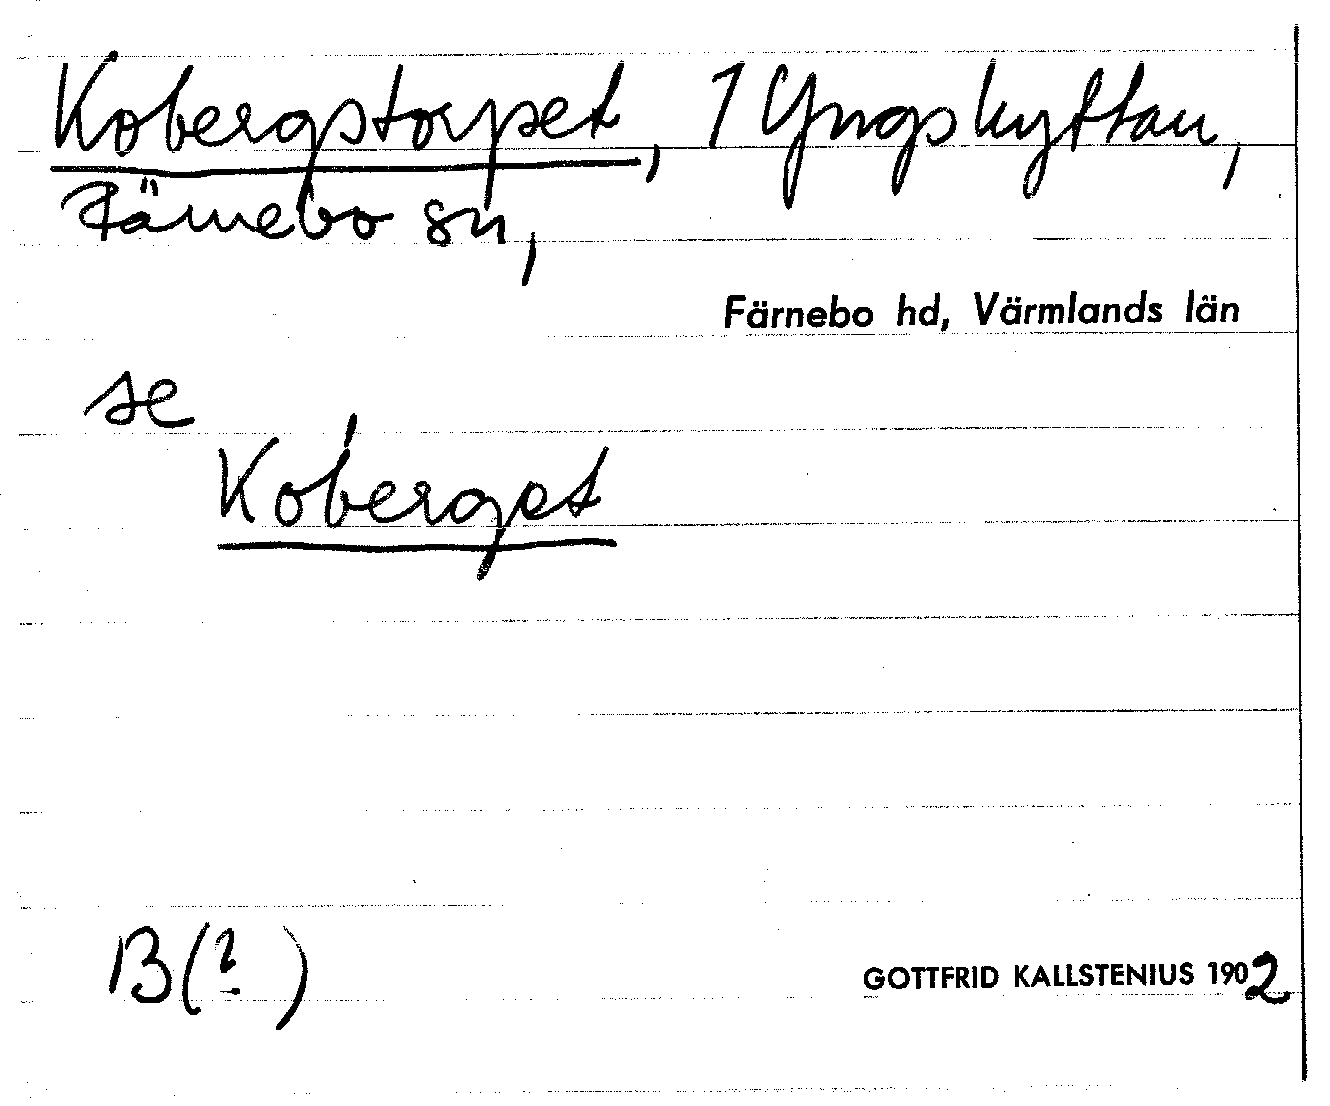 Kobergstorpet, 1 Yngshyttan,
Färnebo sn,
Färnebo hd, Värmlands län
se
Koberget
B(?)
GOTTFRID KALLSTENIUS 1902